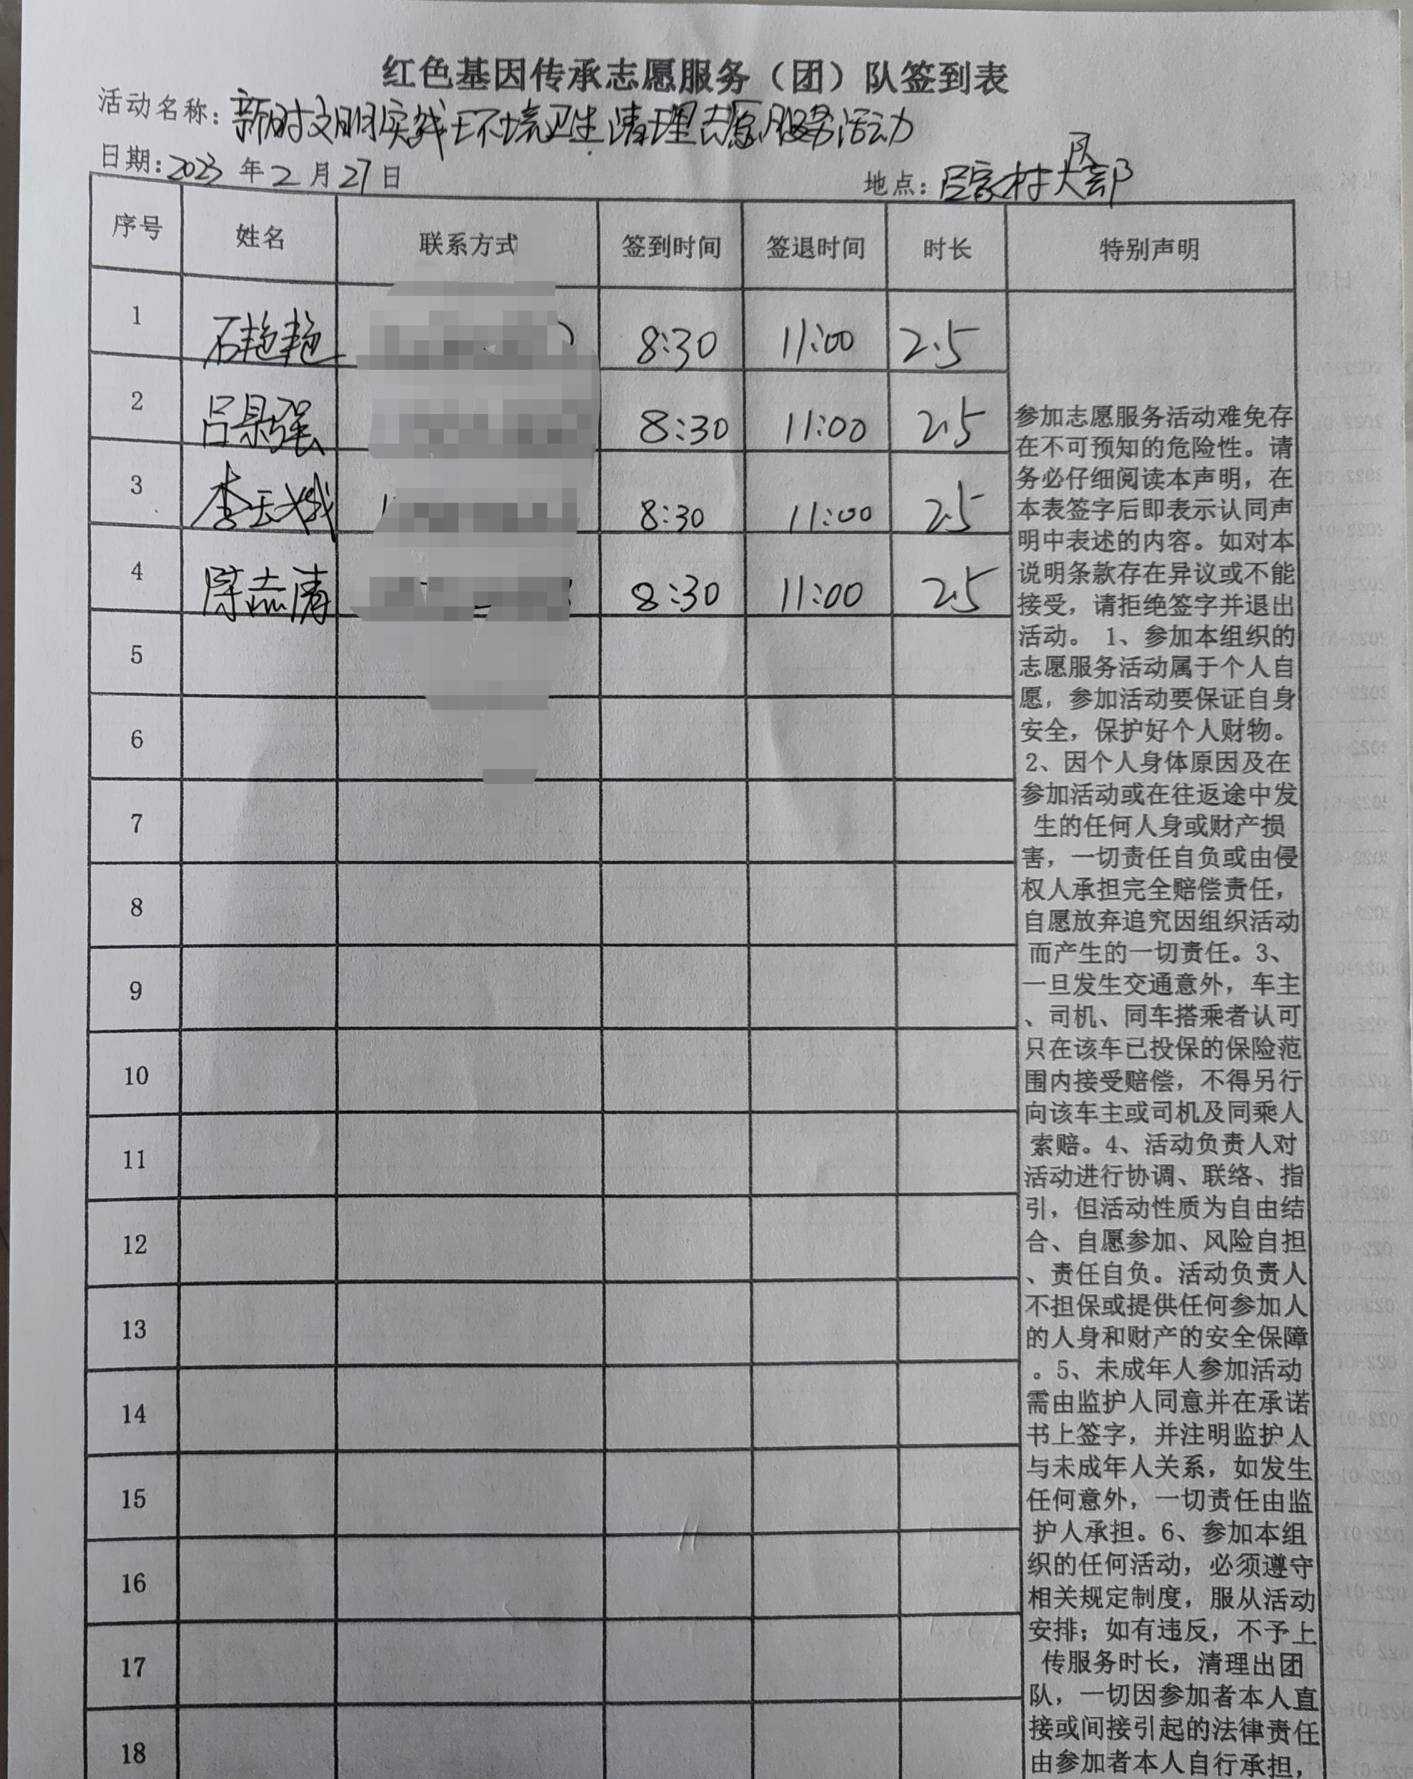 红色基因传承志愿服务（团）队签到表
活动名称：新时文明实践环境卫生清理志愿服务活动
日期：2023年2月27日 地点：吕家村大
序号 姓名 联系方式 签到时间 签退时间 时长 特别声明
1 石艳艳 8:30 11:00 2.5
2 吕景强 8:30 11:00 2.5
3 李玉娥 8:30 11:00 2.5
4 陈志清 8:30 11:00 2.5
5
6
7
8
9
10
11
12
13
14
15
16
17
18
参加志愿服务活动难免存
在不可预知的危险性。请
务必仔细阅读本声明，在
本表签字后即表示认同声
明中表述的内容。如对本
说明条款存在异议或不能
接受，请拒绝签字并退出
活动。 1、参加本组织的
志愿服务活动属于个人自
愿，参加活动要保证自身
安全，保护好个人财物。
2、因个人身体原因及在
参加活动或在往返途中发
生的任何人身或财产损
害，一切责任自负或由侵
权人承担完全赔偿责任，
自愿放弃追究因组织活动
而产生的一切责任。3、
一旦发生交通意外，车主
、司机、同车搭乘者认可
只在该车已投保的保险范
围内接受赔偿，不得另行
向该车主或司机及同乘人
索赔。4、活动负责人对
活动进行协调、联络、指
引，但活动性质为自由结
合、自愿参加、风险自担
、责任自负。活动负责人
不担保或提供任何参加人
的人身和财产的安全保障
。5、未成年人参加活动
需由监护人同意并在承诺
书上签字，并注明监护人
与未成年人关系，如发生
任何意外，一切责任由监
护人承担。6、参加本组
织的任何活动，必须遵守
相关规定制度，服从活动
安排；如有违反，不予上
传服务时长，清理出团
队，一切因参加者本人直
接或间接引起的法律责任
由参加者本人自行承担，